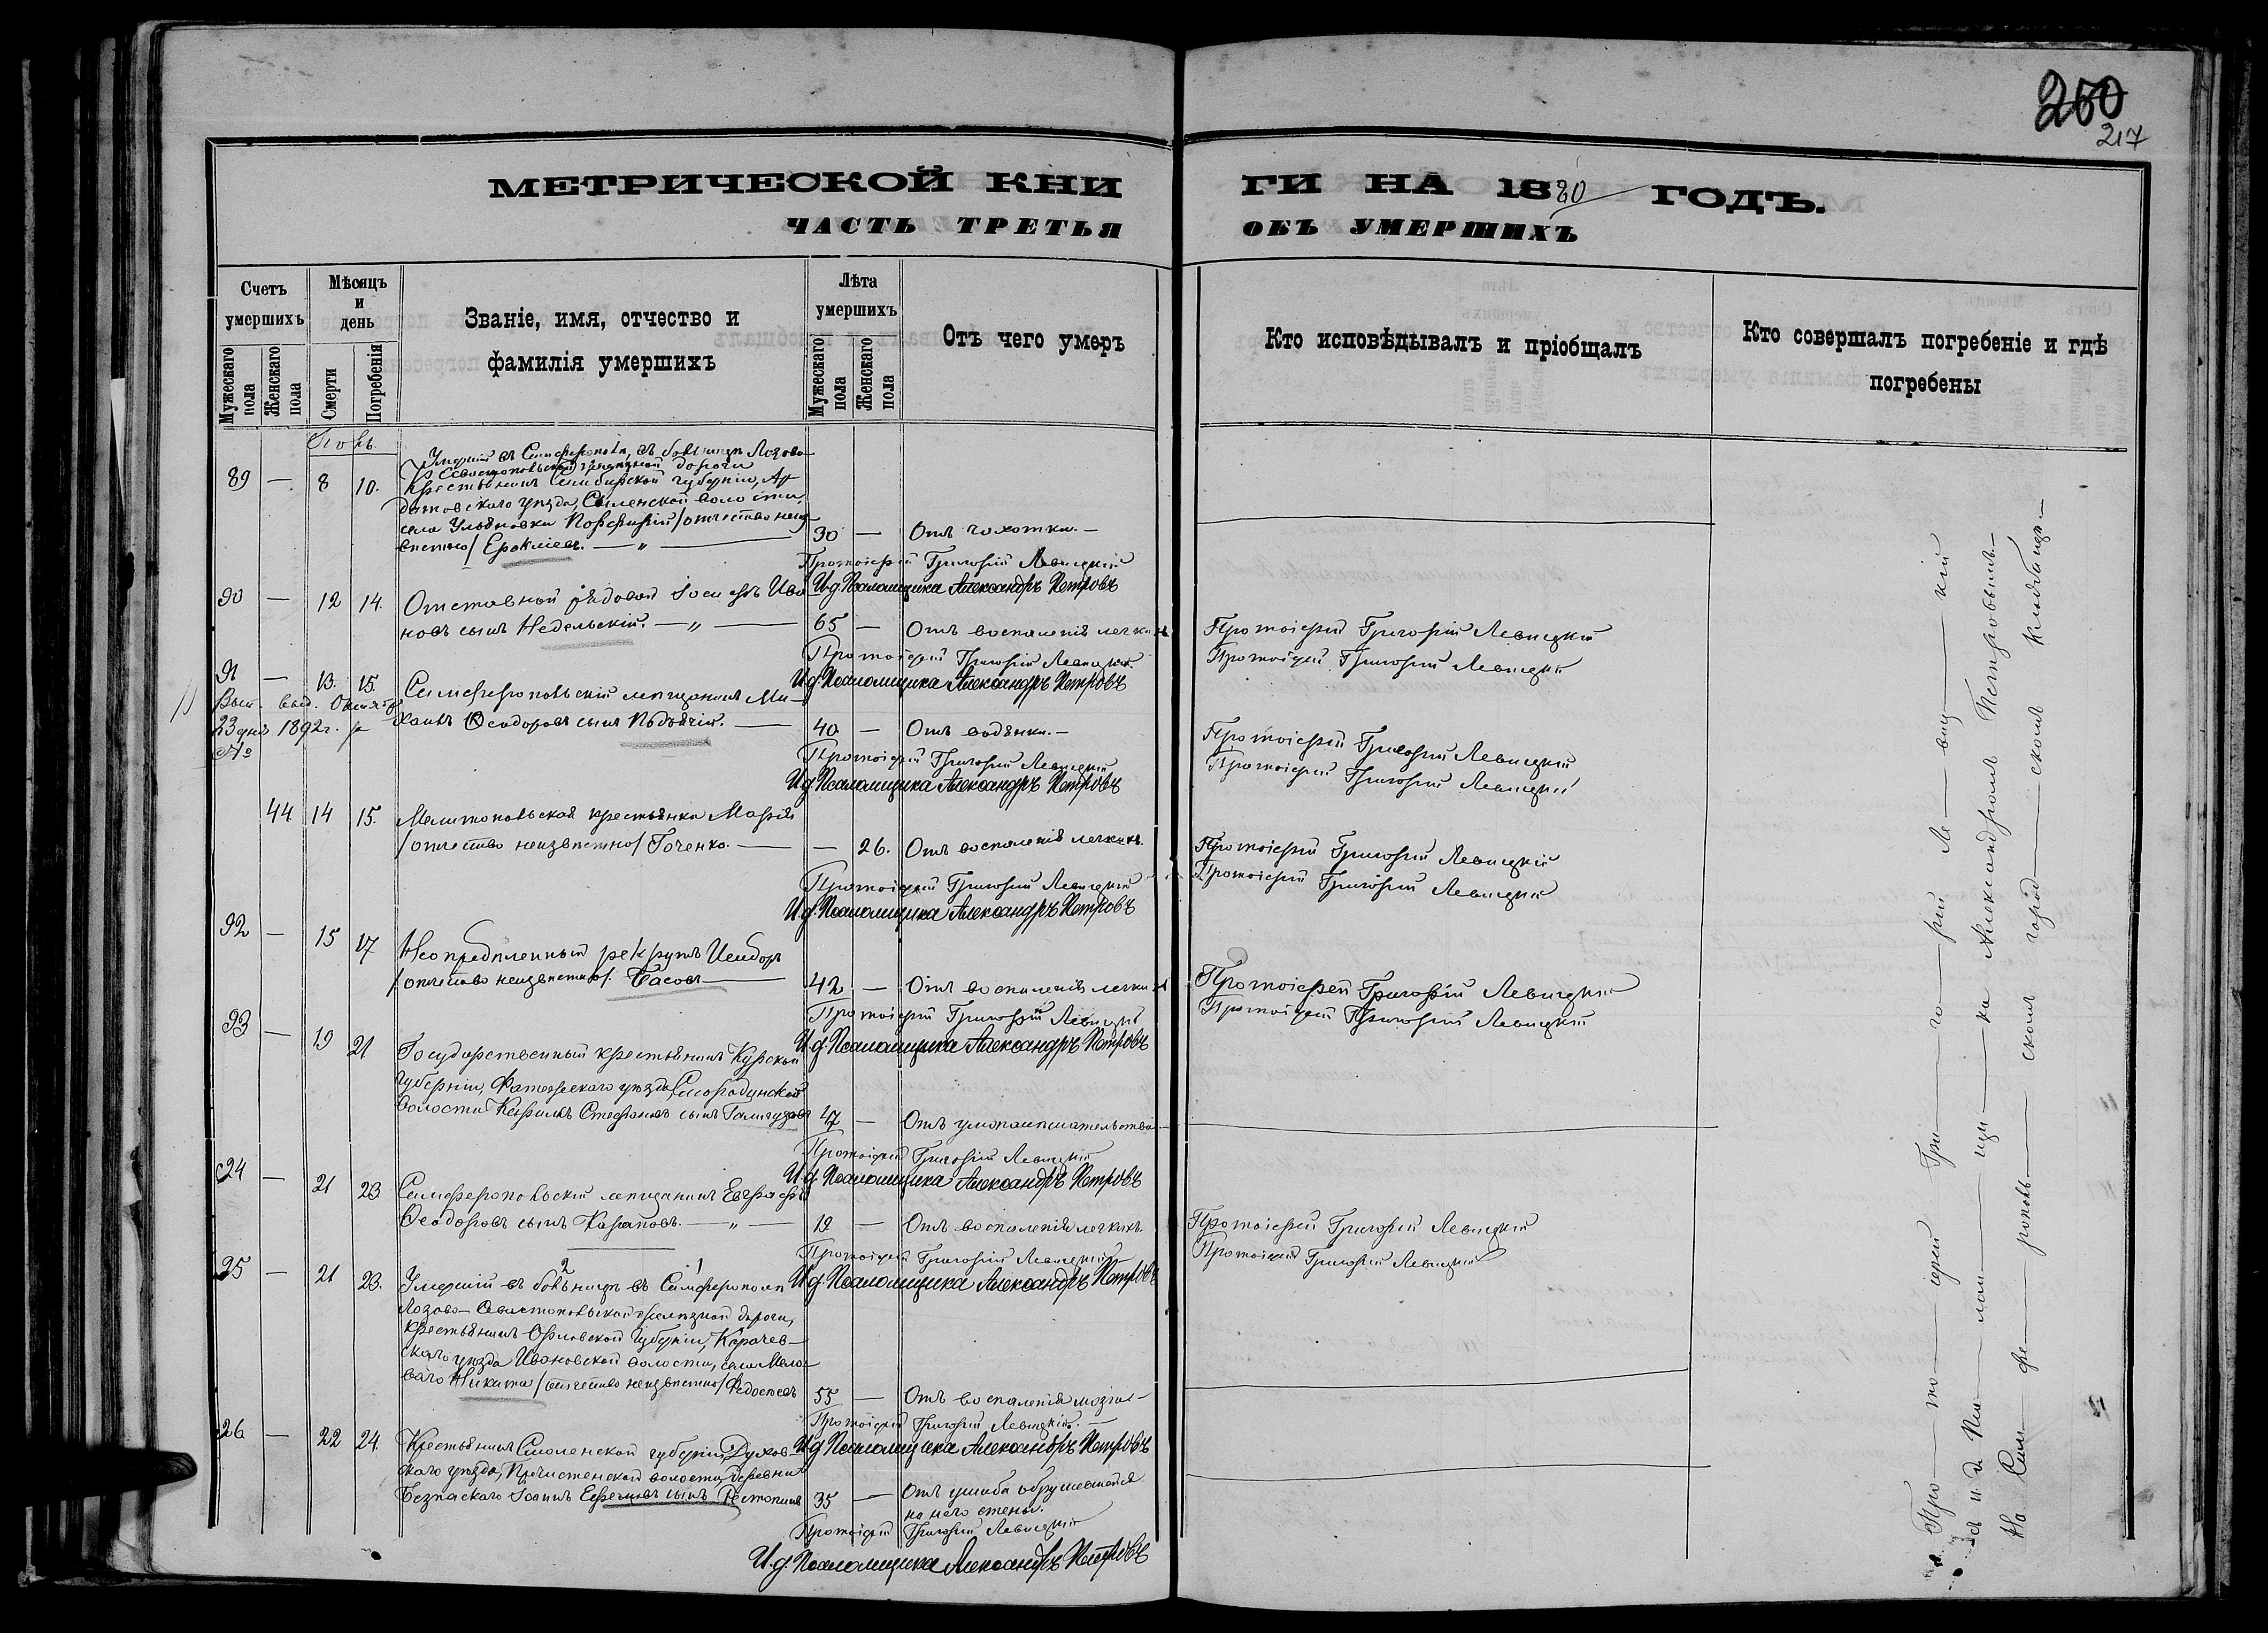 250
217
МЕТРИЧЕСКОЙ КНИ
ГИ НА 1880 ГОДЪ.
ЧАСТЬ ТРЕТЬЯ
ОБЪ УМЕРШИХЪ
Счетъ умершихъ
Мѣсяцъ и день
Званіе, имя, отчество и фамилія умершихъ
Лѣта умершихъ
Отъ чего умеръ
Кто исповѣдывалъ и пріобщалъ
Кто совершалъ погребеніе и гдѣ погребены
Мужескаго пола
Женскаго пола
Смерти
Погребенія
Мужескаго пола
Женскаго пола
89 — 8 10.
Умершій въ Симферополѣ, въ больницѣ Лозово-
Севастопольской желѣзной дороги
Крестьянинъ Симбирской губерніи, Ар-
датовскаго уѣзда, волости,
села Ульяновки Порфирій /отчество неиз-
вѣстно/ Ераклiевъ. — „ —
30 — Отъ чахотки. —
Протоіерей Григорій Левицкій
И.д. Псаломщика Александръ Петровъ
90 — 12 14.
Отставной рядовой Іосифъ Ива-
новъ сынъ Недельскій. — „ —
65 — Отъ воспаленія легкихъ
Протоіерей Григорій Левицкій
И.д. Псаломщика Александръ Петровъ
Протоіерей Григорій Левицкій
Протоіерей Григорій Левицкій
91 — 13. 15.
Вып. выд. Октября
23 дня 1892 г. №
Симферопольскій мѣщанинъ Ми-
хаилъ Ѳеодоровъ сынъ Подъячій. —
40 — Отъ водянки. —
Протоіерей Григорій Левицкій
И.д. Псаломщика Александръ Петровъ
Протоіерей Григорій Левицкій
Протоіерей Григорій Левицкій
44 14 15.
Мелитопольская крестьянка Марія
/отчество неизвѣстно/ Гоченко. —
— 26. Отъ воспаленія легкихъ.
Протоіерей Григорій Левицкій
И.д. Псаломщика Александръ Петровъ
Протоіерей Григорій Левицкій
Протоіерей Григорій Левицкій
92 — 15 17
Неопредѣленный рекрутъ Исидоръ
/отчество неизвѣстно/. Басовъ —
42 — Отъ воспаленія легкихъ
Протоіерей Григорій Левицкій
И.д. Псаломщика Александръ Петровъ
Протоіерей Григорій Левицкій
Протоіерей Григорій Левицкій
93 — 19 21
Государственный крестьянинъ Курской
губерніи, Фатежскаго уѣзда, Смородинской
волости Кириллъ Стефановъ сынъ
47 — Отъ умопомѣшательства —
Протоіерей Григорій Левицкій
И.д. Псаломщика Александръ Петровъ
94 — 21 23
Симферопольскій мѣщанинъ Евграфъ
Ѳеодоровъ сынъ Карповъ. — „ —
19 — Отъ воспаленія легкихъ.
Протоіерей Григорій Левицкій
И.д. Псаломщика Александръ Петровъ
Протоіерей Григорій Левицкій
Протоіерей Григорій Левицкій
95 — 21 23.
2 1
Умершій въ больницѣ въ Симферополѣ
Лозово-Севастопольской желѣзной дороги,
Крестьянинъ Орловской губерніи, Карачев-
скаго уѣзда Ивановской волости, села
Никита /отчество неизвѣстно/ Федосѣевъ
55 — Отъ воспаленія мозга —
Протоіерей Григорій Левицкій. —
И.д. Псаломщика Александръ Петровъ
26 — 22 24.
Крестьянинъ Смоленской губерніи, Духов-
скаго уѣзда, Пречистенской волости, деревни
Іоаннъ Ефремовъ сынъ
35 — Отъ ушиба обрушившейся
на него стены.
Протоіерей Григорій Левицкій
И.д. Псаломщика Александръ Петровъ
Про — то — іерей Гри — го — рій Ле — виц — кій
съ и. д. Пса — лом — щи — ка Александромъ Петровымъ. —
На Сим — фе — рополь — скомъ город — скомъ кладбищѣ. —